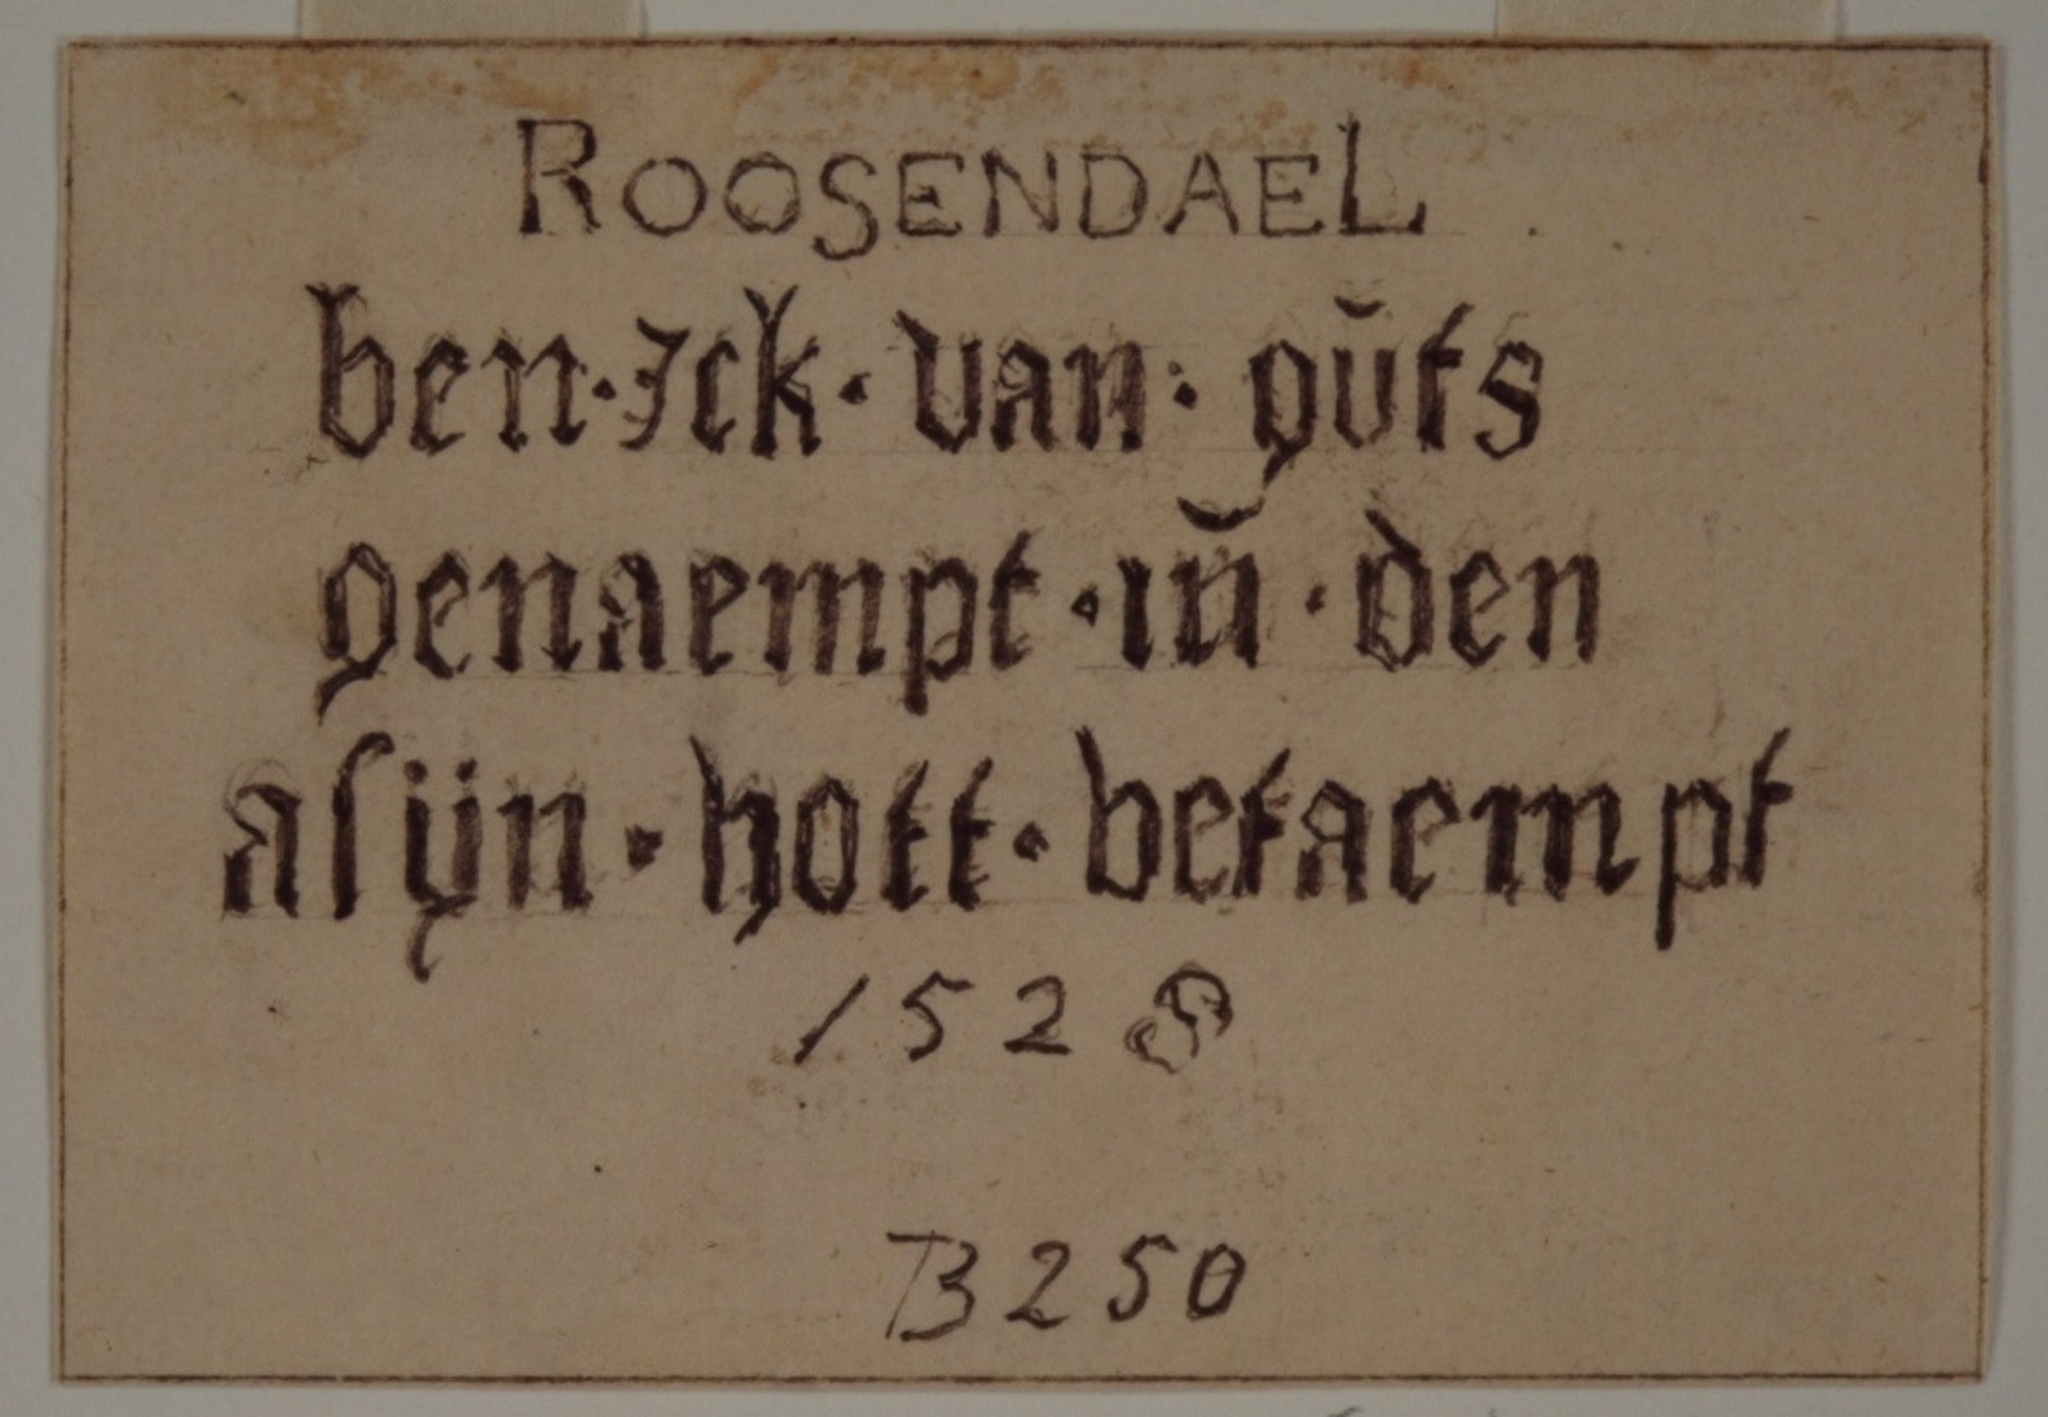 ROOSENDAEL
ben · Ick · van · gŭts
genaempt · in̆ · den
asÿn · hott · betaempt
1528
B 250